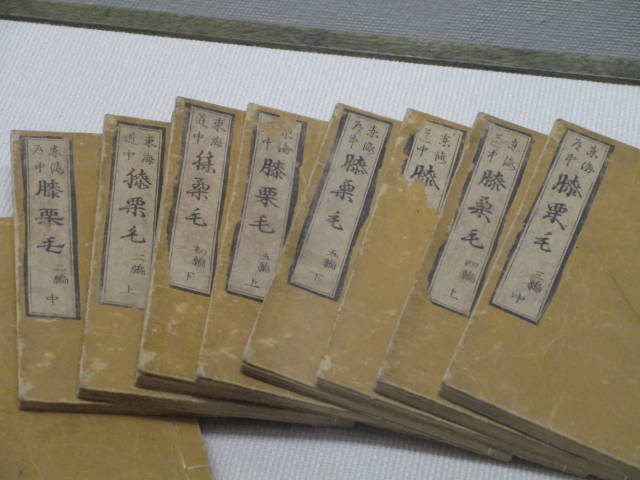 東海
道中
膝栗毛
二編
中
東海
道中
膝栗毛
二編
上
東海
道中
膝栗毛
初編
下
東海
中
膝栗毛
五編
上
東海
道中
膝栗毛
五編
下
東海
道中
膝
東海
道中
膝栗毛
四編
上
東海
道中
膝栗毛
三編
中